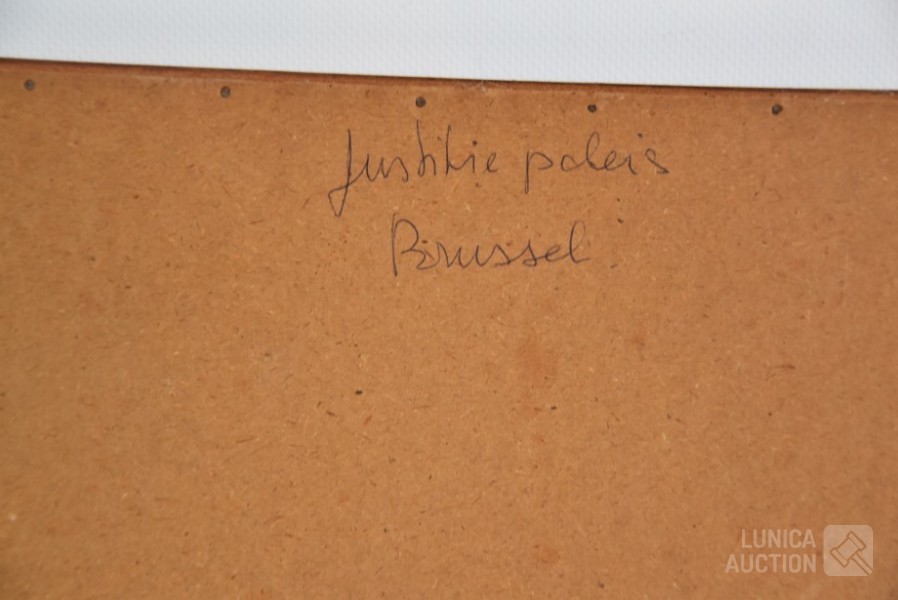 Justitie paleis
Brussel
LUNICA
AUCTION